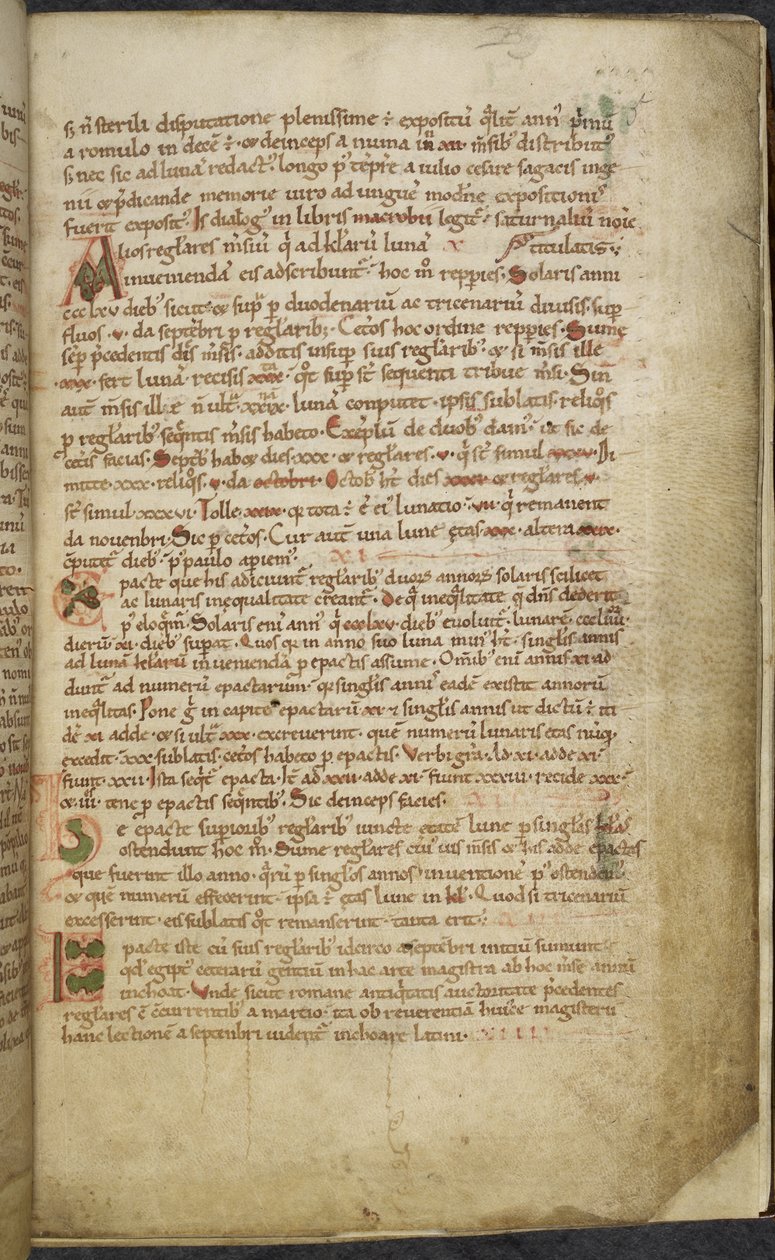 s; n̄ sterili disputatione plenissime ÷ expositū q̄lit̄ ann᷒ p̄mū
a romulo in decē ÷ ⁊ deinceps a numa in xii m̄sib᷒ distribut᷒
s; nec sic ad lunā redact᷒ longo p᷒ tēpr̄e a iulio cesare sagacis inge
nii ⁊ p̄dicande memorie uiro ad unguē mod̄ne expositioni᷒
fuerit exposit᷒ Is dialog᷒ in libris macrobii legit᷒ saturnaliū noīe
Alios reglares m̄siū q̄ ad kl'arū lunā titulatis
inueniendā eis adscribunt᷒ hoc m̊ repperies. Solaris anni
ccc lxv dieb᷒ sicut ⁊ sup̄ p duodenariū ac tricenariū diuisis. sup
fluos .v. da septēbri p reglarib᷒; Cet̄os hoc ordine repperies. Sume
sēp p̄cedentis dēs m̄sis. additis insup suis reglarib᷒ ⁊ si m̄sis ille
.xxx. fert lunā recisis xxx. qỏt sup st̄ sequenti tribue m̄si. Sin
aut̄ m̄sis ill e n̄ ult̄ xxix lunā conputet. ipsis sublatis. reliq̊s
p reglarib᷒ seq̄ntis m̄sis habeto. Exēplū de duob᷒ dam᷒. ut sic de
cet̄is facias. Septēb᷒ hab᷒ ⁊ dies xxx. ⁊ reglares .v. q̄ st̄ simul xxxv. Di
mitte .xxx. reliq̊s .v. da octobri. Octob᷒ ht̄ dies xxxi ⁊ reglares v
st̄ simul xxxvi. Tolle xxix. q̄ tota ÷ ē ei᷒ lunatio .vii. q̄ remanent
da nouenbri. Sic p cet̄os. Cur aut̄ una lune ętas xxx. altera xxix.
cōputet᷒ dieb᷒ p᷒ paulo apiem᷒. XI
Epacte que his adiciunt᷒ reglarib᷒ duoꝝ annoꝝ solaris scilicet
ac lunaris inequalitate creant᷒. De q̄ ineq̄litate q dn̄s dederit
p᷒ eloq̄m᷒. Solaris eni ann᷒ q̄ ccclxv dieb᷒ euoluit᷒. lunarē. cccliiii
dierū xi. dieb᷒ supat. Quos q̄ in anno suo luna min᷒ ht̄. singlis annis
ad lunā kl'arū inueniendā p epactis assume. Om̄ib᷒ enī annis xi ad
dunt᷒ ad numerū epactarum. q̄ singlis anni᷒ eadē existit annorū
ineq̄litas. Pone ḡ in capite epactarū xi ⁊ singlis annis ut dictū ÷ iti
dē xi adde. ⁊ si ult̄ xxx. excreuerint. quē numerū lunaris etas nūq̄
excedit. xxx sublatis. cet̄os habeto p epactis. Verbi gr̄a. Ad xi. adde xi.
fiunt .xxii. Ista seq̄t᷒ epacta. It̄ ad xxii. adde xi. fiunt xxxiii. recide xxx.
⁊ .iii. tene p epactis seq̄ntib᷒. Sic deinceps facies.
e epacte supiorib᷒ reglarib᷒ iuncte etatē lune p singlas kl'as
ostendunt hoc m̊. Sume reglares cui᷒ uis m̄sis ⁊ his adde epactas
que fuerint illo anno. q̄rū p singlos annos inuentione p᷒ ostendem᷒
⁊ quē numerū effecerint. ipsa ÷ ętas lune in kl'. Quod si tricenariū
excesserint. eis sublatis qỏt remanserint. tanta erit.
Epacte iste cū suis reglarib᷒ idcirco a septēbri initiū sumunt
qd᷒ egipt᷒ ceterarū gentiū in hac arte magistra ab hoc m̄se annū
inchoat. Vnde sicut romane antiq̄tatis auctoritate p̄cedentes
reglares c̄ c̄currentib᷒ a marcio. ita ob reuerentiā hui᷒ce magisterii
hanc lectionē a septenbri uident᷒ inchoare latini.